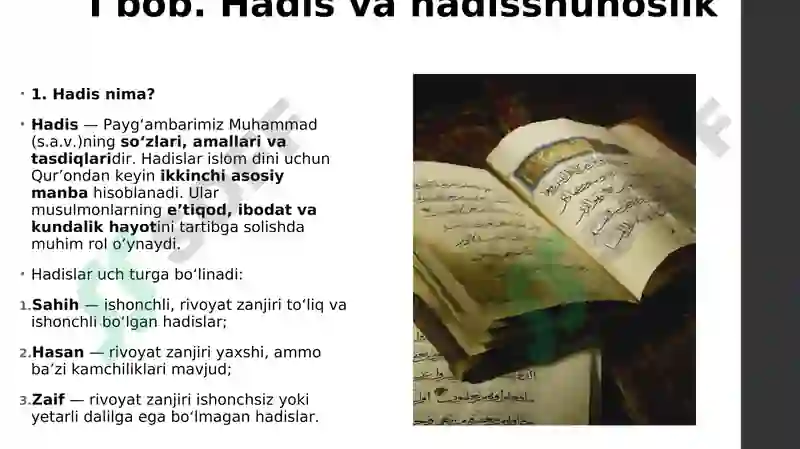 I bob. Hadis va hadisshunoslik
• 1. Hadis nima?
• Hadis — Payg‘ambarimiz Muhammad
(s.a.v.)ning so‘zlari, amallari va
tasdiqlaridir. Hadislar islom dini uchun
Qur’ondan keyin ikkinchi asosiy
manba hisoblanadi. Ular
musulmonlarning e’tiqod, ibodat va
kundalik hayotini tartibga solishda
muhim rol o‘ynaydi.
• Hadislar uch turga bo‘linadi:
1. Sahih — ishonchli, rivoyat zanjiri to‘liq va
ishonchli bo‘lgan hadislar;
2. Hasan — rivoyat zanjiri yaxshi, ammo
ba’zi kamchiliklari mavjud;
3. Zaif — rivoyat zanjiri ishonchsiz yoki
yetarli dalilga ega bo‘lmagan hadislar.